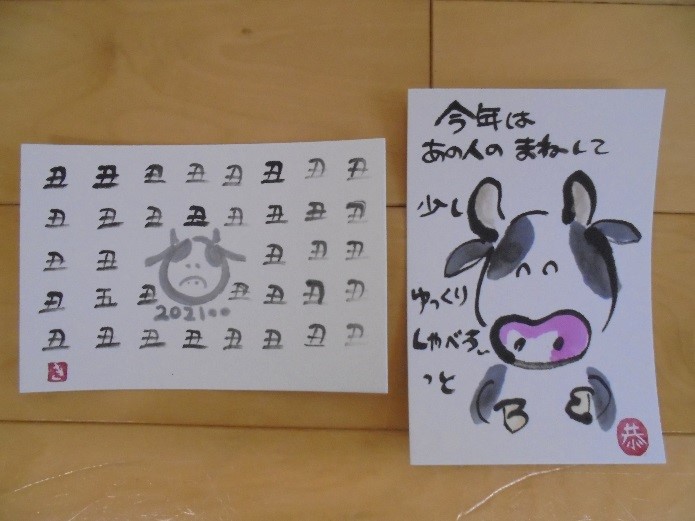 丑 丑 丑 丑 丑 丑 丑 丑
丑 丑 丑 丑 丑 丑 丑 丑
丑 丑 丑 丑 丑
丑 五 丑 丑 丑 丑 丑
202100
丑 丑 丑 丑 丑 丑 丑 丑
き
今年は
あの人の まねして
少し
ゆっくり
しゃべろう
っと
恭